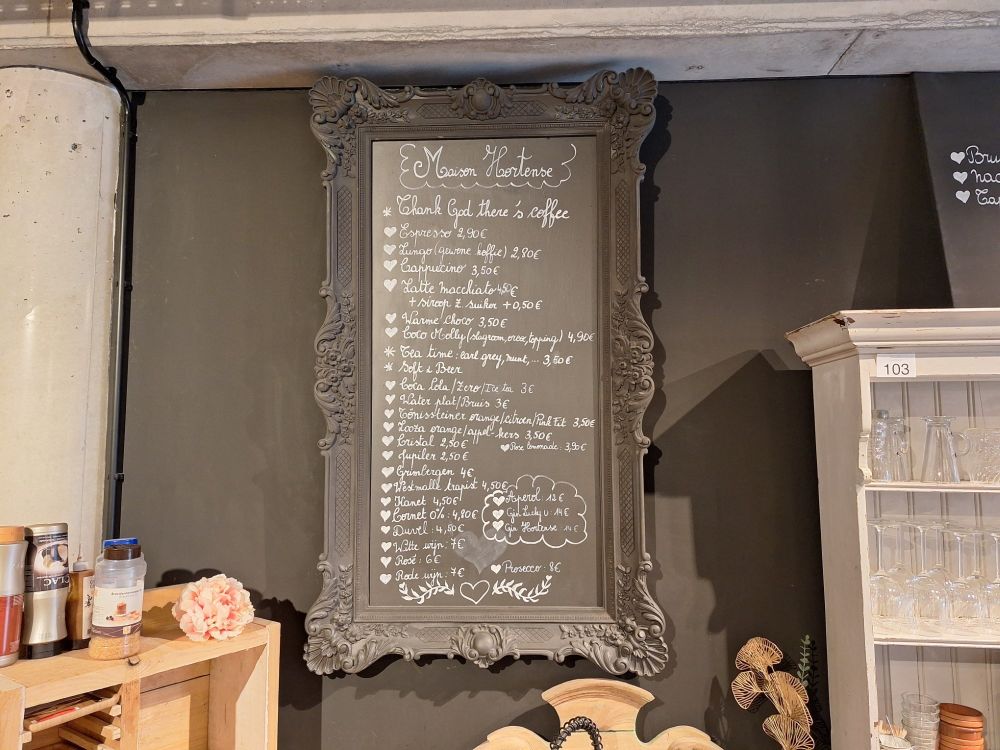 Maison Hortense
Thank God there's coffee
Espresso 2,90€
Lungo (gewone koffie) 2,80€
Cappuccino 3,50€
Latte macchiato 4,50€
+ siroop z. suiker + 0,50€
Warme choco 3,50€
Coco Molly (slagroom, oreo, topping) 4,90€
Tea time: earl grey, munt, ... 3,50€
Soft & Beer
Coca Cola/Zero/Ice tea 3€
Water plat/Bruis 3€
Tönissteiner orange/citroen/Pink Fit 3,50€
Looza orange/appel-kers 3,50€
Cristal 2,50€
Rose lemonade: 3,90€
Jupiler 2,50€
Grimbergen 4€
Westmalle trapist 4,50€
Hanet 4,50€
Cornet 0%: 4,80€
Duvel: 4,50€
Witte wijn: 7€
Rosé: 6€
Rode wijn: 7€
Aperol: 12€
Gin Lucky U 14€
Gin Hortense 14€
Prosecco: 8€
103